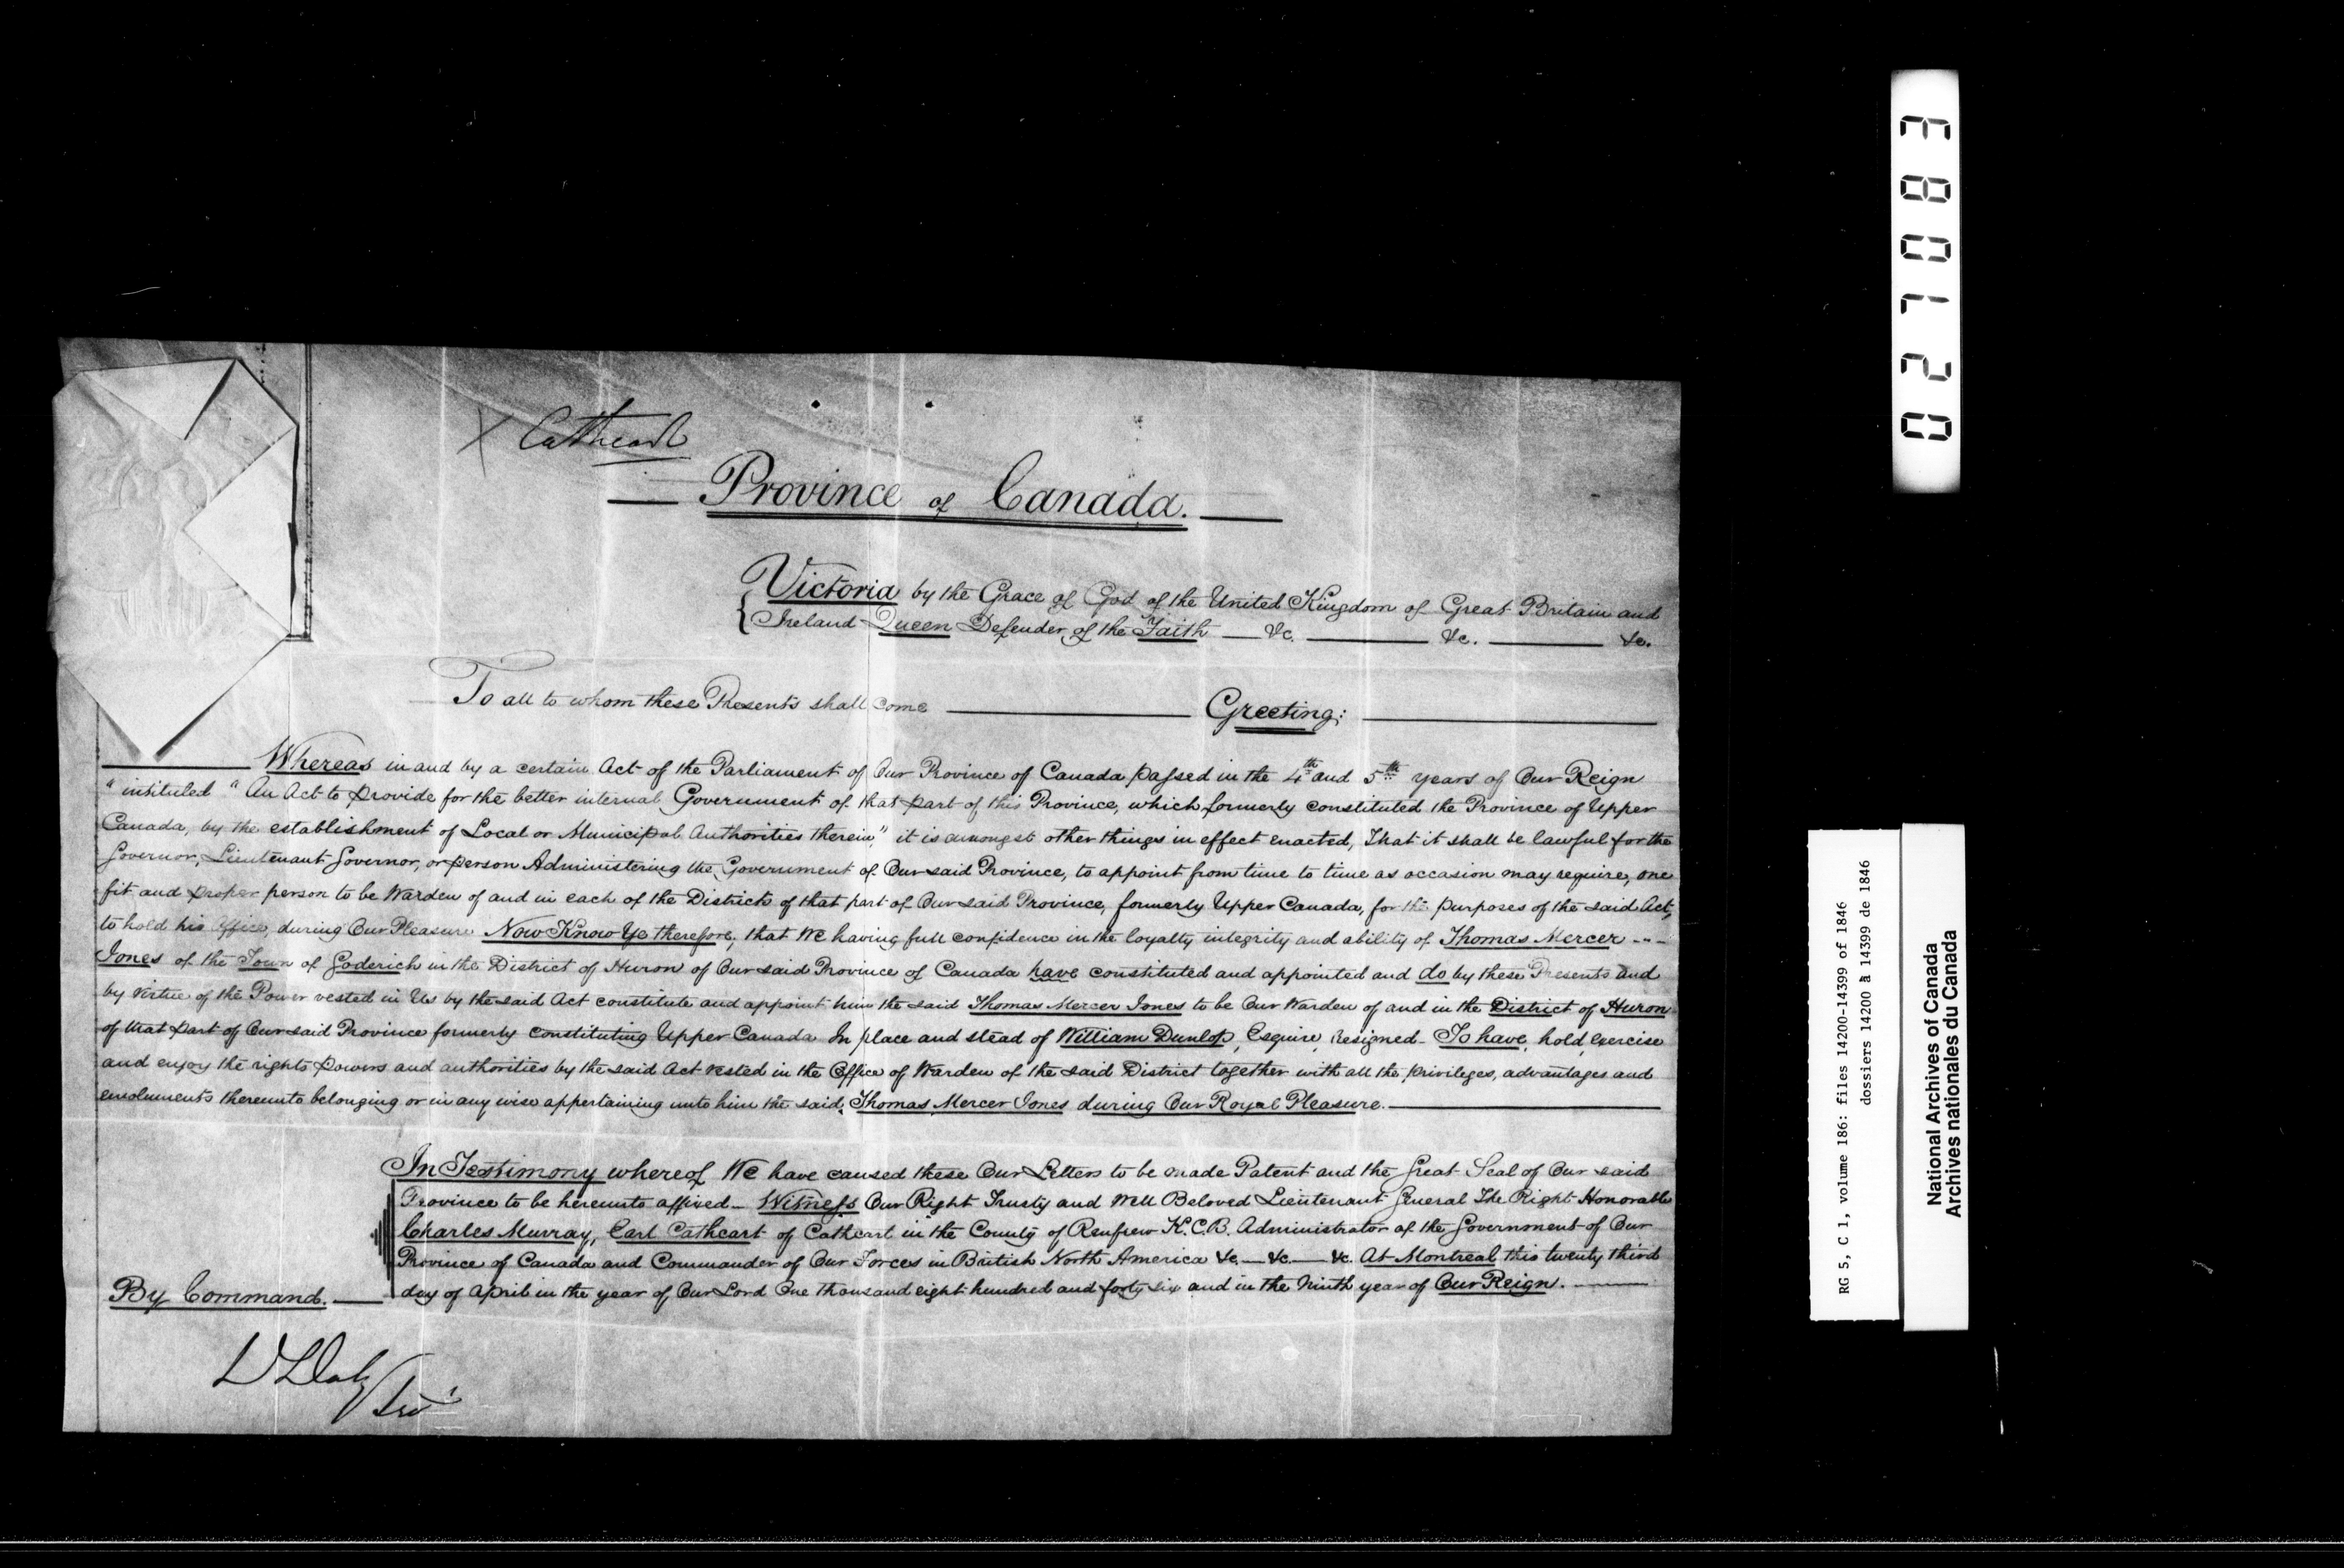 X Cathcart
Province of Canada.
Victoria by the Grace of God of the United Kingdom of Great Britain and
Ireland Queen Defender of the Faith &c. &c. &c.
To all to whom these Presents shall come Greeting:
Whereas in and by a certain Act of the Parliament of Our Province of Canada passed in the 4th and 5th years of Our Reign
" intituled " An Act to provide for the better internal Government of that part of this Province, which formerly constituted the Province of Upper
Canada, by the establishment of Local or Municipal Authorities therein," it is amongst other things in effect enacted, That it shall be lawful for the
Governor, Lieutenant Governor, or person Administering the Government of Our said Province, to appoint from time to time as occasion may require, one
fit and proper person to be Warden of and in each of the Districts of that part of Our said Province, formerly Upper Canada, for the purposes of the said Act,
to hold his Office, during Our Pleasure Now Know Ye therefore, that We having full confidence in the loyalty integrity and ability of Thomas Mercer ---
Jones of the Town of Goderich in the District of Huron of Our said Province of Canada have constituted and appointed and do by these Presents and
by virtue of the Power vested in Us by the said Act constitute and appoint him the said Thomas Mercer Jones to be Our Warden of and in the District of Huron
of that part of Our said Province formerly constituting Upper Canada In place and stead of William Dunlop, Esquire, Resigned - To have, hold, exercise
and enjoy the rights powers and authorities by the said Act vested in the Office of Warden of the said District together with all the privileges, advantages and
emoluments thereunto belonging or in any wise appertaining unto him the said, Thomas Mercer Jones during Our Royal Pleasure.
In Testimony whereof We have caused these Our Letters to be made Patent and the Great Seal of Our said
Province to be hereunto affixed - Witness Our Right Trusty and Well Beloved Lieutenant General The Right Honorable
Charles Murray, Earl Cathcart of Cathcart in the County of Renfrew K.C.B. Administrator of the Government of Our
Province of Canada and Commander of Our Forces in British North America &c. &c. &c. At Montreal this twenty third
day of April in the year of Our Lord One thousand eight hundred and forty six and in the Ninth year of Our Reign.
By Command.
D Daly
Secy
027083
RG 5, C 1, volume 186: files 14200-14399 of 1846
dossiers 14200 à 14399 de 1846
National Archives of Canada
Archives nationales du Canada